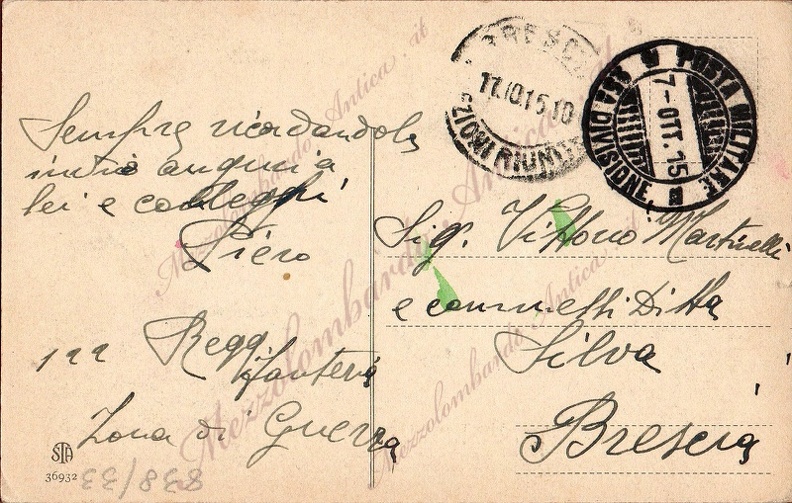 Sempre ricordandola
invio auguri a
lei e colleghi
Piero
122 Regg
Fanteria
Zona di Guerra
STA
36932
838/33
BRESCIA
11.10.15.10
ZIONI RIUNITE
POSTA MILITARE
7-OTT.15
DIVISIONE
Sig. Vittorio Martinelli
e commessi Ditta
Silva
Brescia
Mezzolombardo Antica.it
Mezzolombardo Antica.it
Mezzolombardo Antica.it